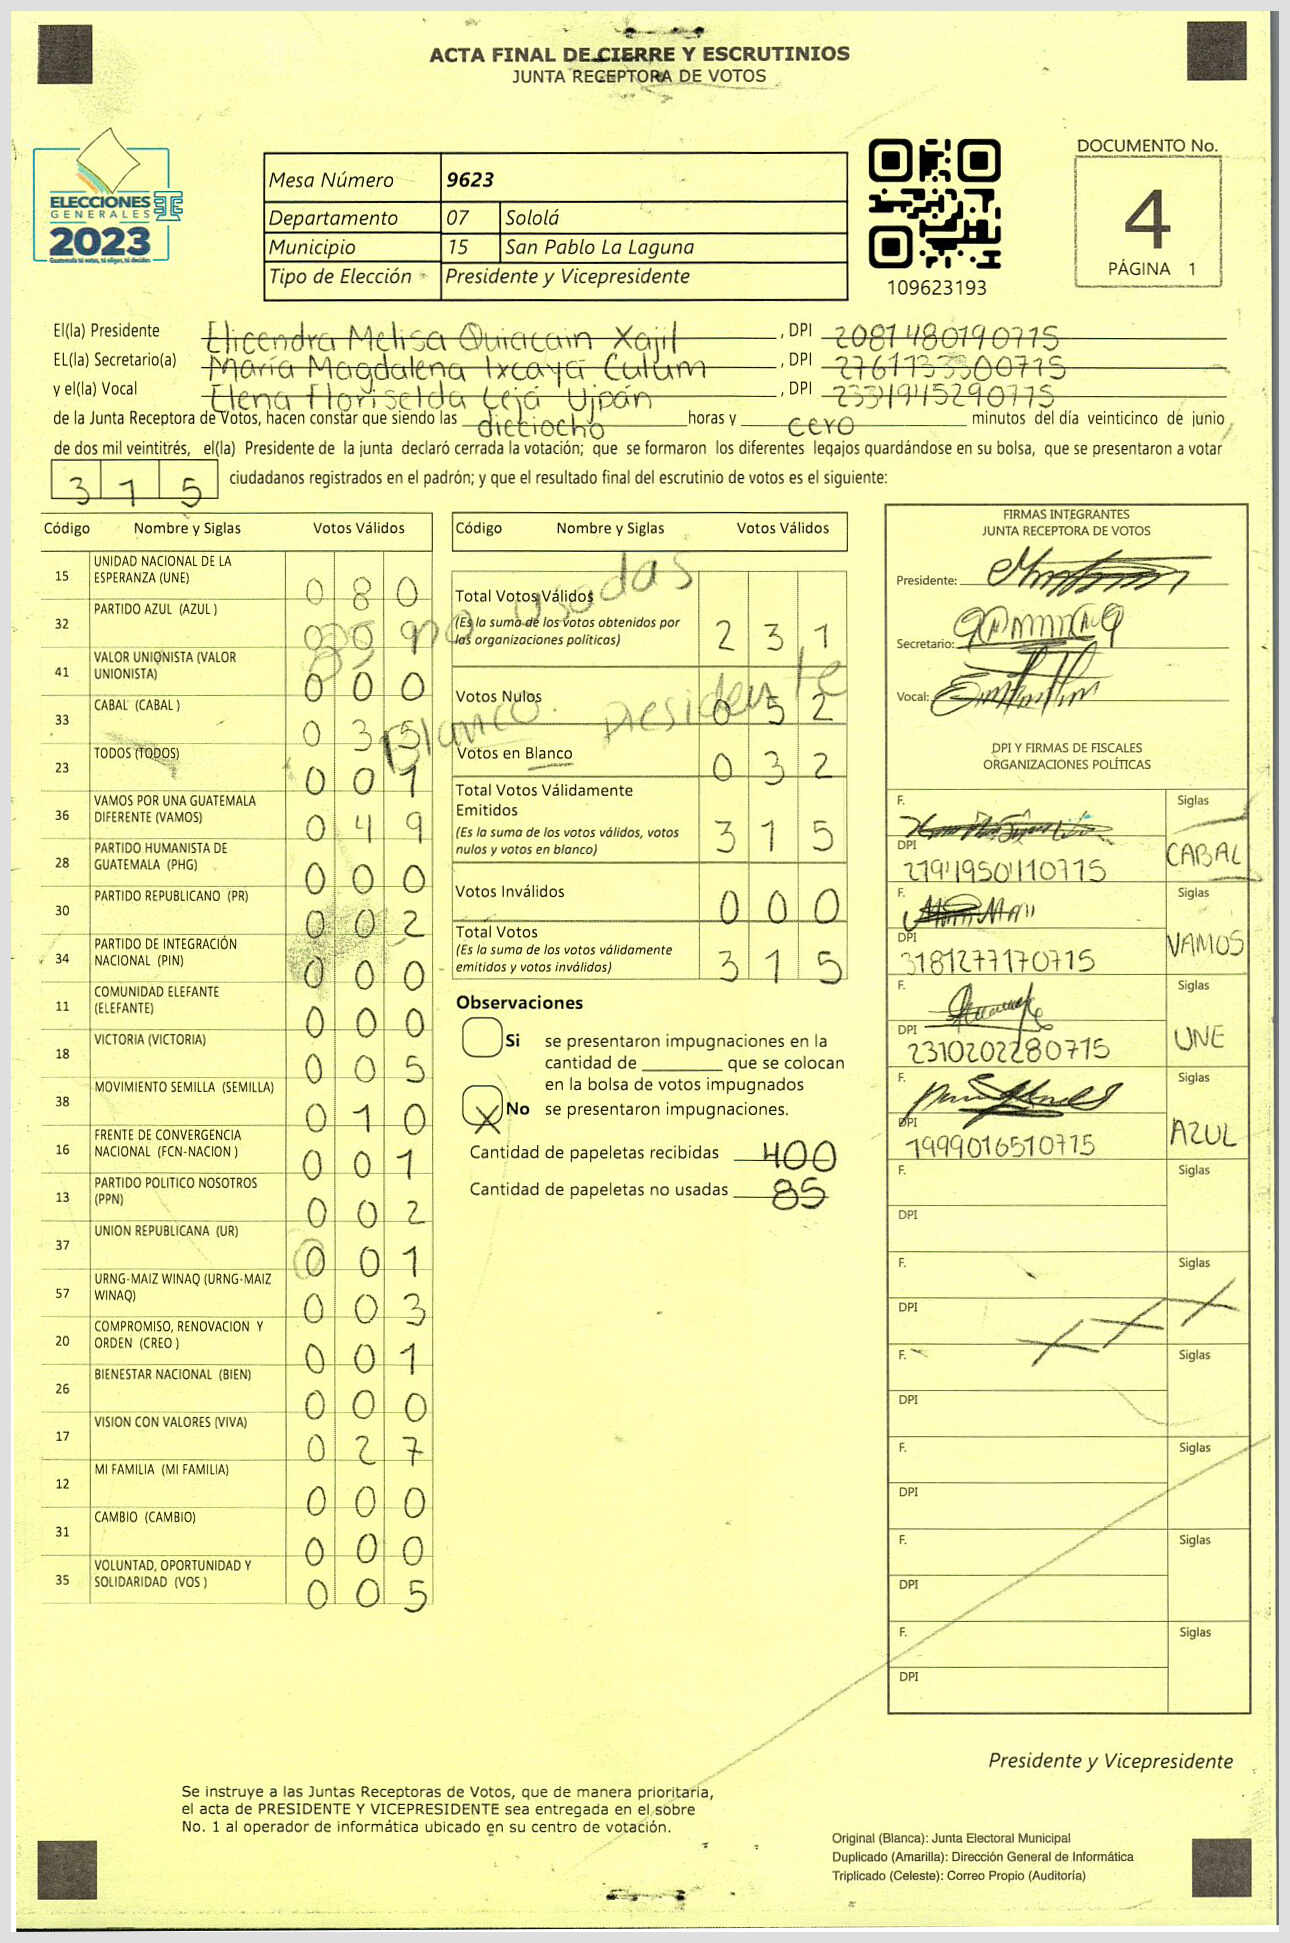 ACTA FINAL DE CIERRE Y ESCRUTINIOS
JUNTA RECEPTORA DE VOTOS
ELECCIONES
GENERALES
2023
Guatemala tú votas, tú eliges, tú decides
Mesa Número 9623
Departamento 07 Sololá
Municipio 15 San Pablo La Laguna
Tipo de Elección Presidente y Vicepresidente
109623193
DOCUMENTO No.
4
PÁGINA 1
El(la) Presidente Elicendra Melisa Quiacain Xajil , DPI 2081480190715
EL(la) Secretario(a) María Magdalena Ixcaya Culum , DPI
y el(la) Vocal Elena Floriselda Cejá Ujpán , DPI 2331945290715
de la Junta Receptora de Votos, hacen constar que siendo las dieciocho horas y cero minutos del día veinticinco de junio
de dos mil veintitrés, el(la) Presidente de la junta declaró cerrada la votación; que se formaron los diferentes legajos guardándose en su bolsa, que se presentaron a votar
3 1 5 ciudadanos registrados en el padrón; y que el resultado final del escrutinio de votos es el siguiente:
Código Nombre y Siglas Votos Válidos
15 UNIDAD NACIONAL DE LA
ESPERANZA (UNE) 0 8 0
32 PARTIDO AZUL (AZUL ) 0 0 9
41 VALOR UNIONISTA (VALOR
UNIONISTA) 0 0 0
33 CABAL (CABAL ) 0 3 5
23 TODOS (TODOS) 0 0 1
36 VAMOS POR UNA GUATEMALA
DIFERENTE (VAMOS) 0 4 9
28 PARTIDO HUMANISTA DE
GUATEMALA (PHG) 0 0 0
30 PARTIDO REPUBLICANO (PR) 0 0 2
34 PARTIDO DE INTEGRACIÓN
NACIONAL (PIN) 0 0 0
11 COMUNIDAD ELEFANTE
(ELEFANTE) 0 0 0
18 VICTORIA (VICTORIA) 0 0 5
38 MOVIMIENTO SEMILLA (SEMILLA) 0 1 0
16 FRENTE DE CONVERGENCIA
NACIONAL (FCN-NACION ) 0 0 1
13 PARTIDO POLITICO NOSOTROS
(PPN) 0 0 2
37 UNION REPUBLICANA (UR) 0 0 1
57 URNG-MAIZ WINAQ (URNG-MAIZ
WINAQ) 0 0 3
20 COMPROMISO, RENOVACION Y
ORDEN (CREO ) 0 0 1
26 BIENESTAR NACIONAL (BIEN) 0 0 0
17 VISION CON VALORES (VIVA) 0 2 7
12 MI FAMILIA (MI FAMILIA) 0 0 0
31 CAMBIO (CAMBIO) 0 0 0
35 VOLUNTAD, OPORTUNIDAD Y
SOLIDARIDAD (VOS ) 0 0 5
Código Nombre y Siglas Votos Válidos
85 no usadas
Blanco. Presidente
Total Votos Válidos
(Es la suma de los votos obtenidos por
las organizaciones políticas) 2 3 1
Votos Nulos 0 5 2
Votos en Blanco 0 3 2
Total Votos Válidamente
Emitidos
(Es la suma de los votos válidos, votos
nulos y votos en blanco) 3 1 5
Votos Inválidos 0 0 0
Total Votos
(Es la suma de los votos válidamente
emitidos y votos inválidos) 3 1 5
Observaciones
Si se presentaron impugnaciones en la
cantidad de ________ que se colocan
en la bolsa de votos impugnados
X No se presentaron impugnaciones.
Cantidad de papeletas recibidas 400
Cantidad de papeletas no usadas 85
FIRMAS INTEGRANTES
JUNTA RECEPTORA DE VOTOS
Presidente:
Secretario:
Vocal:
DPI Y FIRMAS DE FISCALES
ORGANIZACIONES POLÍTICAS
F. Siglas
CABAL
DPI
F. Siglas
VAMOS
DPI
3181277170715
F. Siglas
UNE
DPI
2310202280715
F. Siglas
AZUL
DPI
1999016510715
F. Siglas
DPI
F. Siglas
DPI
F. Siglas
DPI
F. Siglas
DPI
F. Siglas
DPI
F. Siglas
DPI
Presidente y Vicepresidente
Se instruye a las Juntas Receptoras de Votos, que de manera prioritaria,
el acta de PRESIDENTE Y VICEPRESIDENTE sea entregada en el sobre
No. 1 al operador de informática ubicado en su centro de votación.
Original (Blanca): Junta Electoral Municipal
Duplicado (Amarilla): Dirección General de Informática
Triplicado (Celeste): Correo Propio (Auditoría)